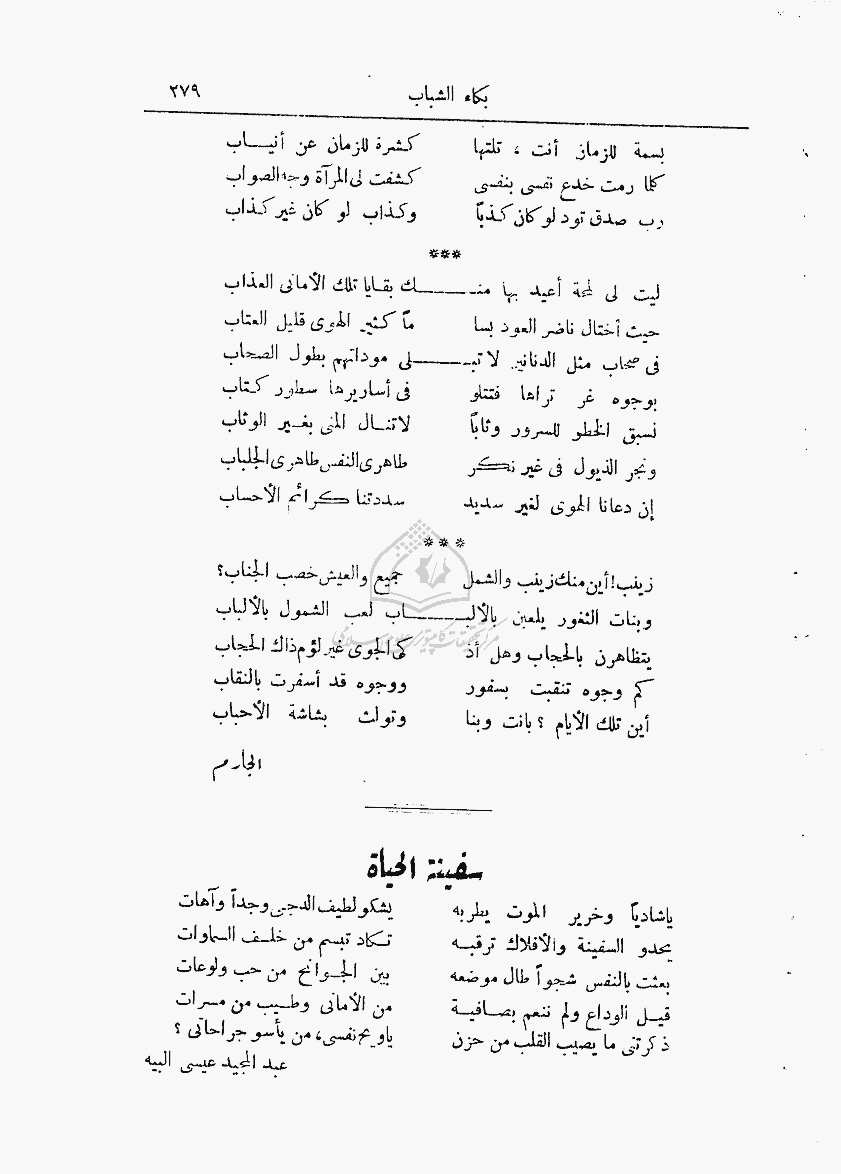 بكاء الشباب ٢٧٩
بسمة للزمان أنت ، تلتها كشرة للزمان عن أنيـــاب
كلما رمت خدع نفسى بنفسى كشفت لى المرآة وجه الصواب
رب صدق تود لو كان كذباً وكذاب لو كان غير كذاب
***
ليت لى لمحة أعيد بها منـــــك بقايا تلك الأمانى العذاب
حيث أختال ناضر العود بسا ماً كثير الهوى قليل العتاب
فى صحاب مثل الدنانير لا تبـــــلى موداتهم بطول الصحاب
بوجوه غر تراها فتتلو فى أساريرها سطور كتاب
نسبق الخطو للسرور وثاباً لا تنـــال المنى بغـــير الوثاب
ونجر الذيول فى غير نكر طاهرى النفس طاهرى الجلباب
إن دعانا الهوى لغير سديد سددتنا كرائم الأحساب
***
زينب! أين منك زينب والشمل جميع والعيش خصب الجناب؟
وبنات الثغور يلعبن بالألبـــــاب لعب الشمول بالألباب
يتظاهرن بالحجاب وهل أذ كى الجوى غير لؤم ذاك الحجاب
كم وجوه تنقبت بسفور ووجوه قد أسفرت بالنقاب
أين تلك الأيام ؟ بانت وبنا وتولت بشاشة الأحباب
الجارم
سفينة الحياة
ياشادياً وخرير الموت يطربه يشكو لطيف الدجى وجداً وآهات
يحدو السفينة والأفلاك ترقبـــه تـــكاد تبسم من خلـــف السماوات
بعثت بالنفس شجواً طال موضعه بين الجـــوانح من حب ولوعات
قيـــل الوداع ولم ننعم بصـــافيـــة من الأمانى وطـــيب من مسرات
ذكرتنى ما يصيب القلب من حزن ياويح نفسى، من يأسو جراحاتى ؟
عبد المجيد عيسى البيه